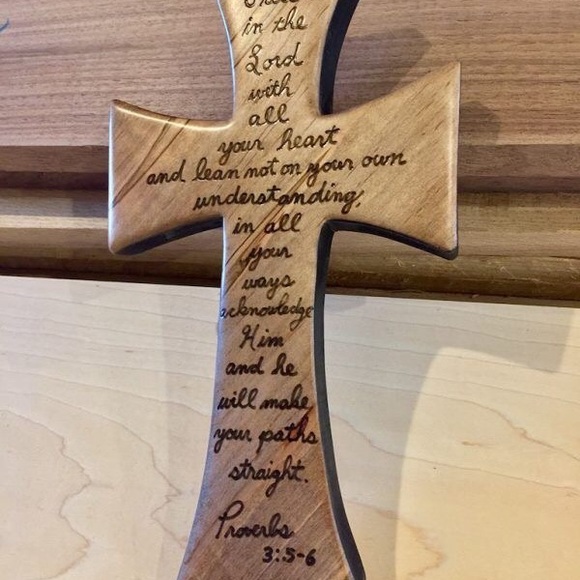 in the
Lord
with
all
your heart
and lean not on your own
understanding,
in all
your
ways
acknowledge
Him
and he
will make
your paths
straight.
Proverbs
3:5-6